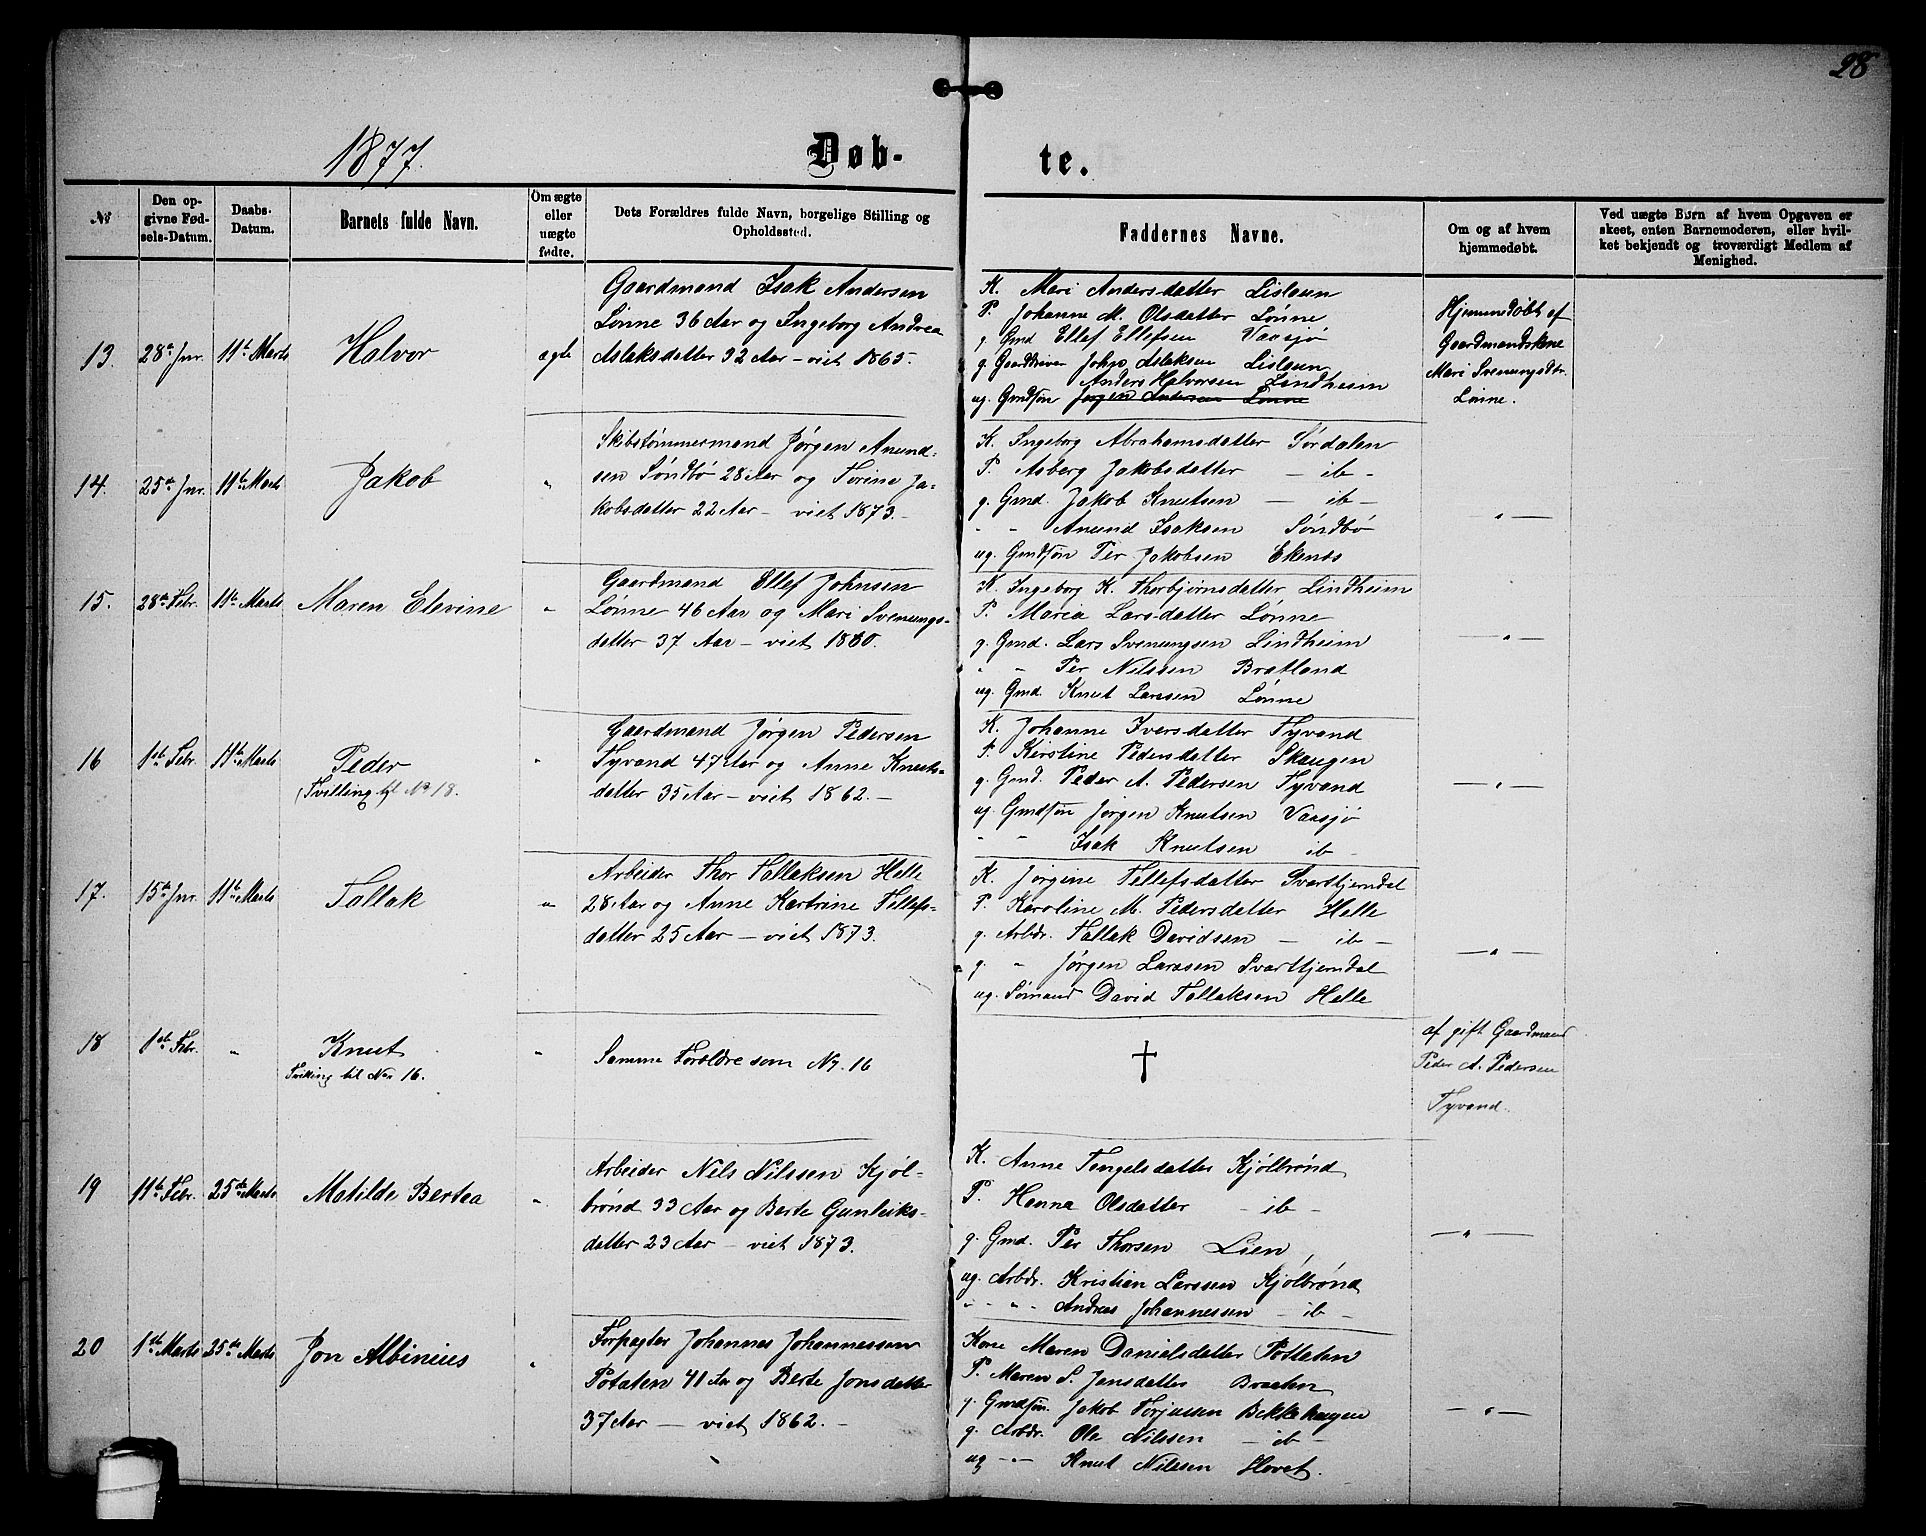 28
1877.
Døb-
te.
№
Den op-
givne Fød-
sels-Datum.
Daabs-
Datum.
Barnets fulde Navn.
Om ægte
eller
uægte
fødte.
Dets Forældres fulde Navn, borgelige Stilling og
Opholdssted.
Faddernes Navne.
Om og af hvem
hjemmedøbt.
Ved uægte Børn af hvem Opgaven er
skeet, enten Barnemoderen, eller hvil-
ket bekjendt og troværdigt Medlem af
Menighed.
13. 28de Jnr. 11te Marts Halvor ægte
Gaardmand Isak Andersen
Lønne 36 Aar og Ingeborg Andrea
Aslaksdatter 32 Aar – viet 1865.
K. Mari Andersdatter Lislaun
P. Johanne M. Olsdatter Lønne
g. Gmd Ellef Ellefsen Vaasjø
g. Gaardbruer John Aslaksen Lislaun
Anders Halvorsen Lindheim
ug. Gmdsøn Jørgen Andersen Lønne
Hjemmedøbt af
Gaardmandskone
Mari Svenungsdtr.
Lønne.
14. 25de Jnr. 11te Marts Jakob "
Skibstømmermand Jørgen Anund-
sen Søndbø 28 Aar og Torine Ja-
kobsdatter 22 Aar – viet 1873.
K. Ingeborg Abrahamsdatter Sørdalen
P. Asberg Jakobsdatter – ib –
g. Gmd. Jakob Knutsen – ib –
" " Anund Isaksen Søndbø
ug. Gmdsøn Per Jakobsen Ekenes
— " —
15. 28de Febr. 11te Marts Maren Elevine "
Gaardmand Ellef Johnsen
Lønne 46 Aar og Mari Svenungs-
datter 37 Aar – viet 1860.
K. Ingeborg K. Thorbjørnsdatter Lindheim
P. Maria Larsdatter Lønne
g. Gmd. Lars Svenungsen Lindheim
" " Per Nilssen Bratland
ug. Gmd. Knut Larssen Lønne
— " —
16 1ste Febr. 11te Marts Peder "
(Tvilling til No 18.
Gaardmand Jørgen Pedersen
Tyvand 47 Aar og Anne Knuts-
datter 35 Aar – viet 1862. –
K. Johanne Iversdatter Tyvand
P. Kerstine Pedersdatter Skaugen
g. Gmd. Peder A. Pedersen Tyvand
ug. Gmdsøn Jørgen Knutsen Vaasjø
" " Isak Knutsen ib –
— " —
17. 15de Jnr. 11te Marts Tallak "
Arbeider Thor Tallaksen Helle
28 Aar og Anne Kartrine Tellefs-
datter 25 Aar – viet 1873.
K. Jørgine Tellefsdatter Svarttjerndal
P. Karoline M. Pedersdatter Helle
g. Arbdr. Tallak Davidsen – ib –
g. " Jørgen Larssen Svarttjerndal
ug. Sømand David Tallaksen Helle
— " —
18 1ste Febr. " Knut "
Tvilling til Nr. 16.
Samme Forældre som No. 16
†
af gift Gaardmand
Peder A. Pedersen
Tyvand.
19 11te Febr. 25de Marts Matilde Bertea "
Arbeider Nels Nilssen Kjøl-
brønd 33 Aar og Berte Gunleiks-
datter 23 Aar – viet 1873.
K. Anne Tengelsdatter Kjølbrønd
P. Hanna Olsdatter – ib –
g. Gmd. Per Thorsen Lien
ug. Arbdr. Kristian Larssen Kjølbrønd
" " " Andreas Johannessen – ib –
— " —
20 1ste Marts 25de Marts Jon Albinius "
Forpagter Johannes Johannessen
Potaten 41 Aar og Berte Jonsdatter
37 Aar — viet 1862. –
Kone Maren Danielsdatter Pottaten
P. Maren S. Jensdatter Braaten
g. Gmdsøn. Jakob Torjussen Bekkehaugen
g. Arbdr. Ole Nilssen – ib –
ug – " – Knut Nilssen Hovet.
— " —